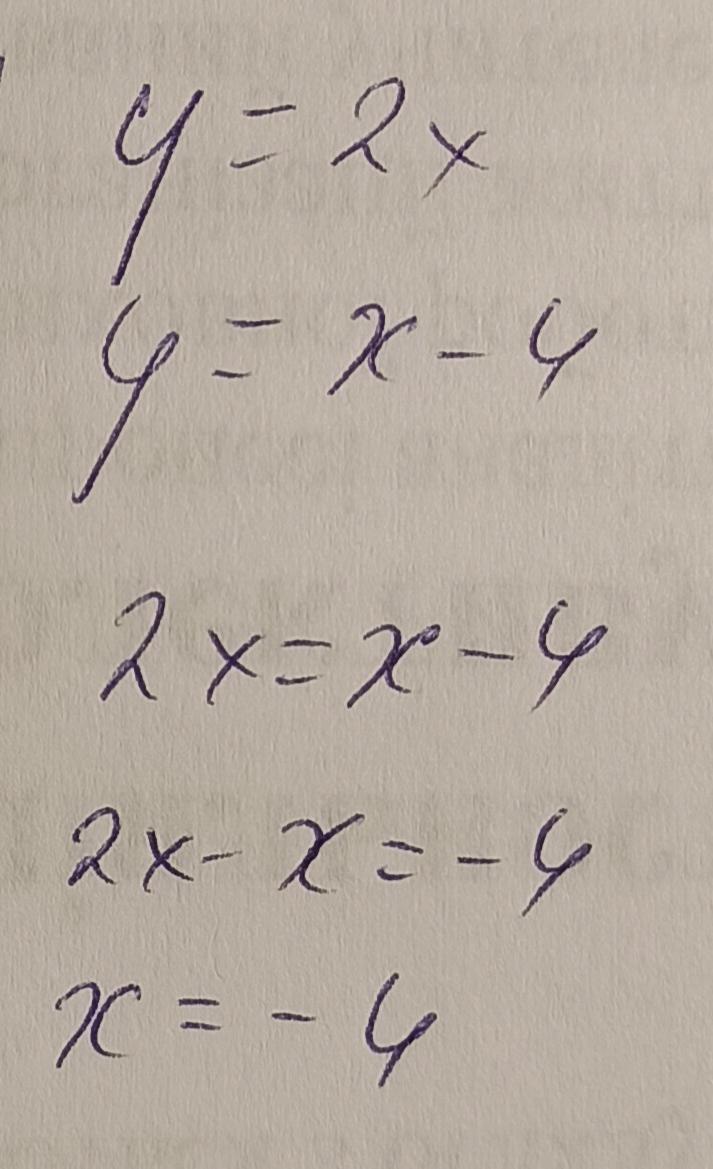 y = 2x
y = x - 4
2x = x - 4
2x - x = - 4
x = - 4